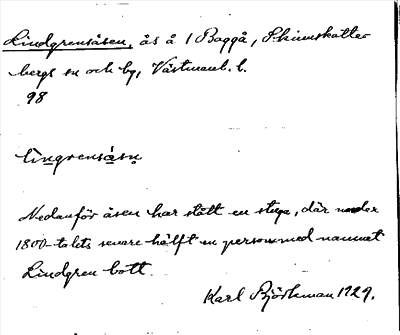 Lindgrensåsen, ås å 1 Baggå, Skinnskatte-
bergs sn och by, Västmanl. l.
98
lìngrensá̀sn̥
Nedanför åsen har stått en stuga, där under
1800-talets senare hälft en person med namnet
Lindgren bott.
Karl Björkman 1929.